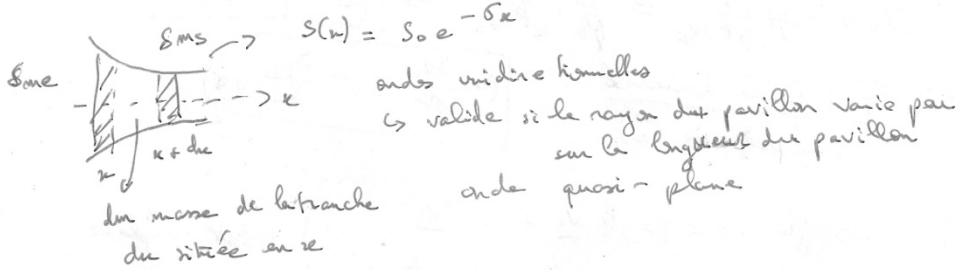 δms
S(x) = S₀ e^{-σx}
δme
ondes unidirectionnelles
→ x
↳ valide si le rayon du pavillon varie peu
sur la longueur du pavillon
x + dx
x
onde quasi-plane
dm masse de la tranche
dx située en x